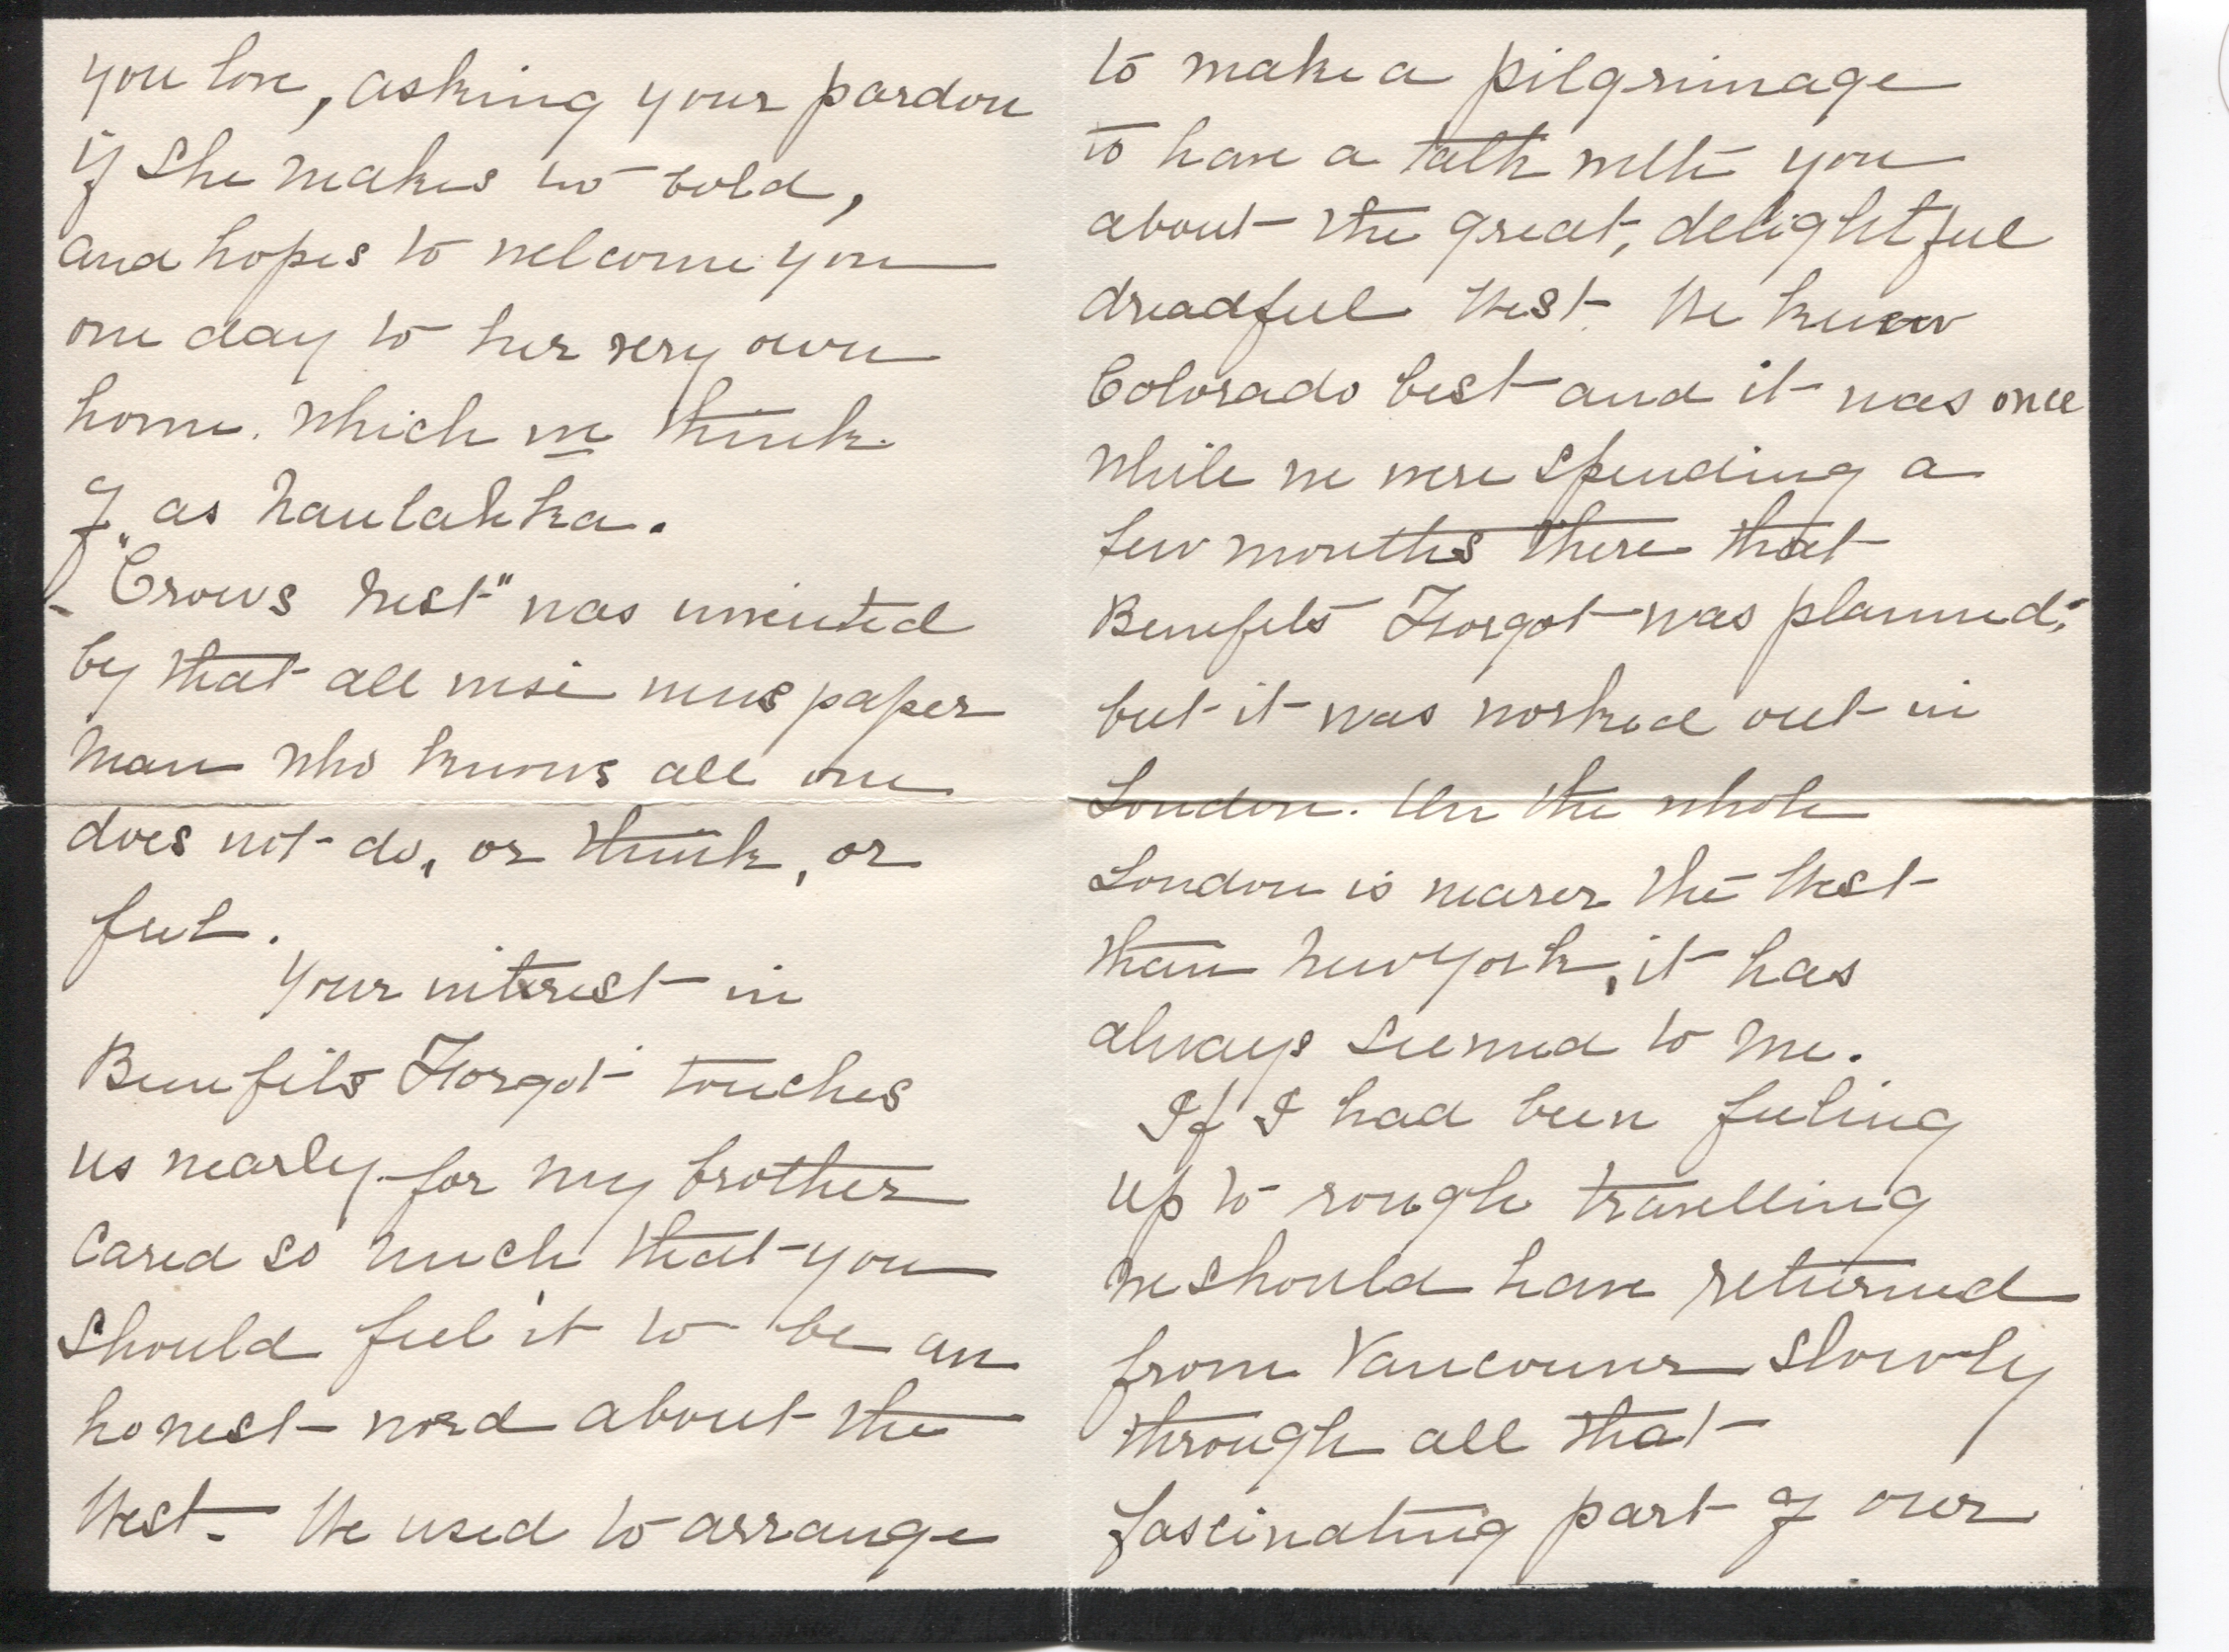 you love, asking your pardon
if she makes too bold,
and hopes to welcome you
one day to her very own
home. Which we think
of as Naulahka.
- "Crows Nest" was invented
by that all wise newspaper
man who knows all one
does not do, or think, or
feel.
Your interest in
Benefits Forgot touches
us nearly for my brother
cared so much that you
should feel it to be an
honest word about the
West. We used to arrange
to make a pilgrimage
to have a talk with you
about the great, delightful
dreadful West. We knew
Colorado best and it was once
while we were spending a
few months there that
Benefits Forgot was planned;
but it was worked out in
London. On the whole
London is nearer the West
than New York, it has
always seemed to me.
If I had been feeling
up to rough travelling
we should have returned
from Vancouver slowly
through all that
fascinating part of our